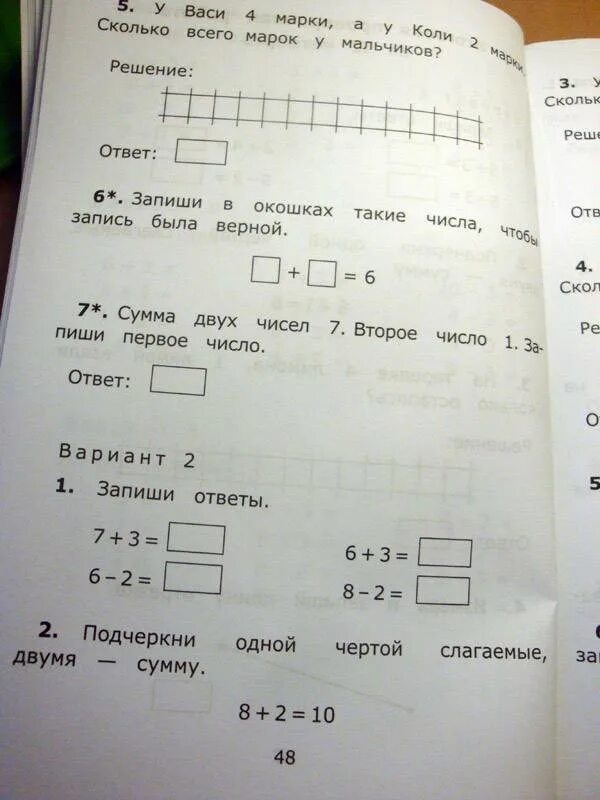 5. У Васи 4 марки, а у Коли 2 марки.
Сколько всего марок у мальчиков?
Решение:
Ответ:
6*. Запиши в окошках такие числа, чтобы
запись была верной.
+ = 6
7*. Сумма двух чисел 7. Второе число 1. За-
пиши первое число.
Ответ:
Вариант 2
1. Запиши ответы.
7 + 3 =
6 + 3 =
6 – 2 =
8 – 2 =
2. Подчеркни одной чертой слагаемые,
двумя — сумму.
8 + 2 = 10
48
3. У
Сколь
Реше
Отв
4.
Скол
Ре
О
5
6
за